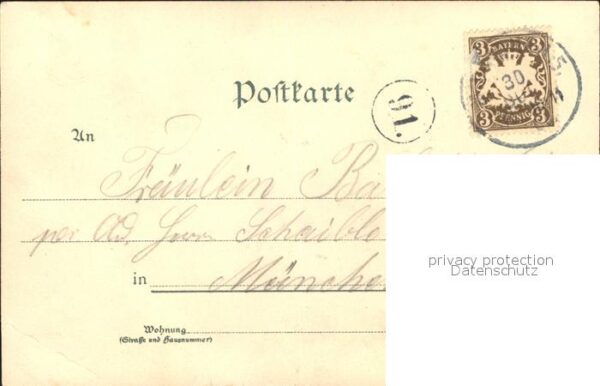 3 BAYERN 3
30
3 PFENNIG 3
Postkarte
91.
An
Fräulein
per Ad. Herrn Schaible
in München
privacy protection
Datenschutz
Wohnung
(Straße und Hausnummer)